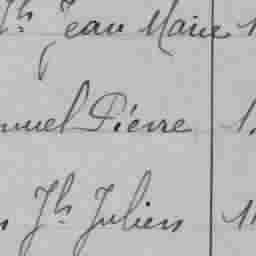 Jh Jean Marie 1
nuel Pierre 1
Jh Julien 11